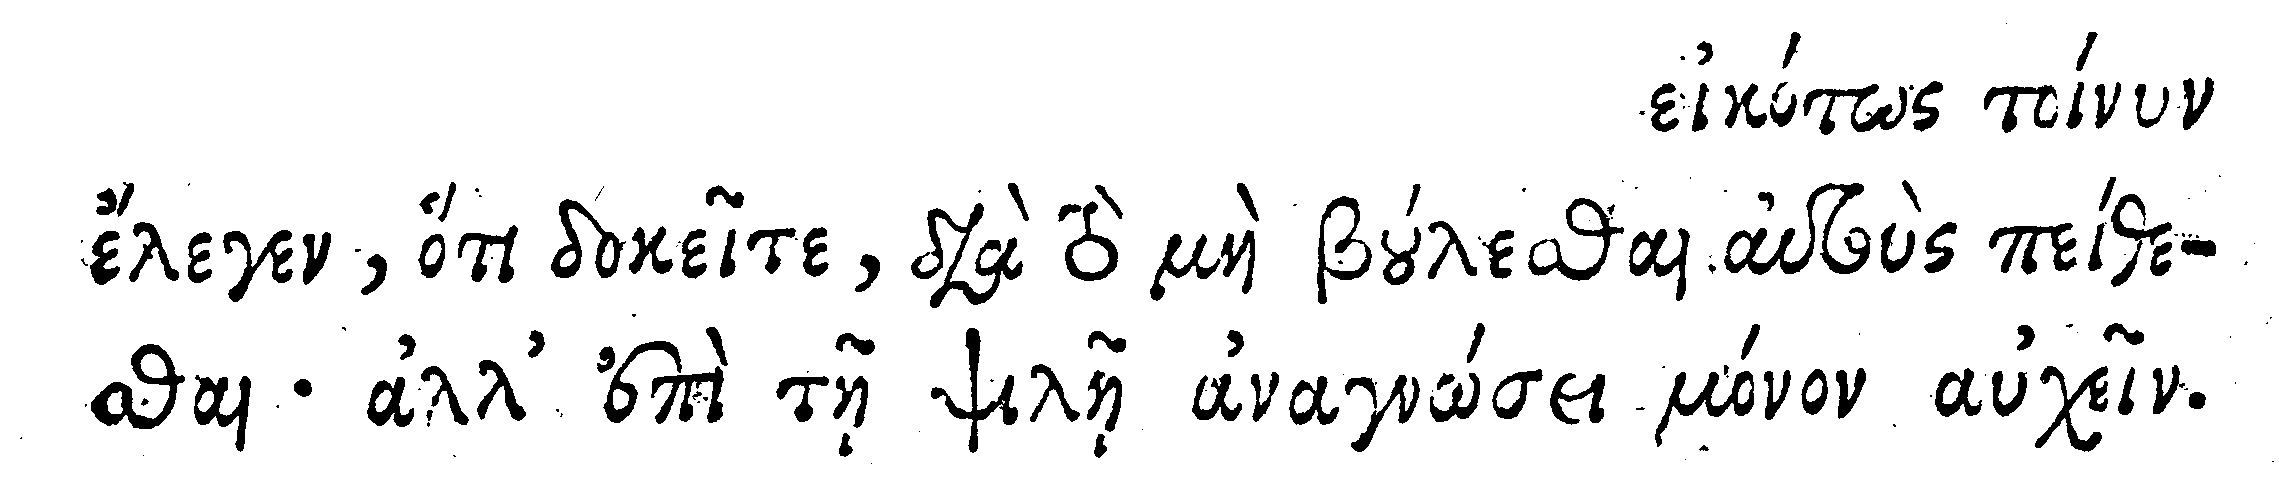 εἰκότως τοίνυν
ἔλεγεν, ὅτι δοκεῖτε, διὰ τὸ μὴ βούλεσθαι αὐτοὺς πείθε-
σθαι· ἀλλ’ ἐπὶ τῇ ψιλῇ ἀναγνώσει μόνον αὐχεῖν.